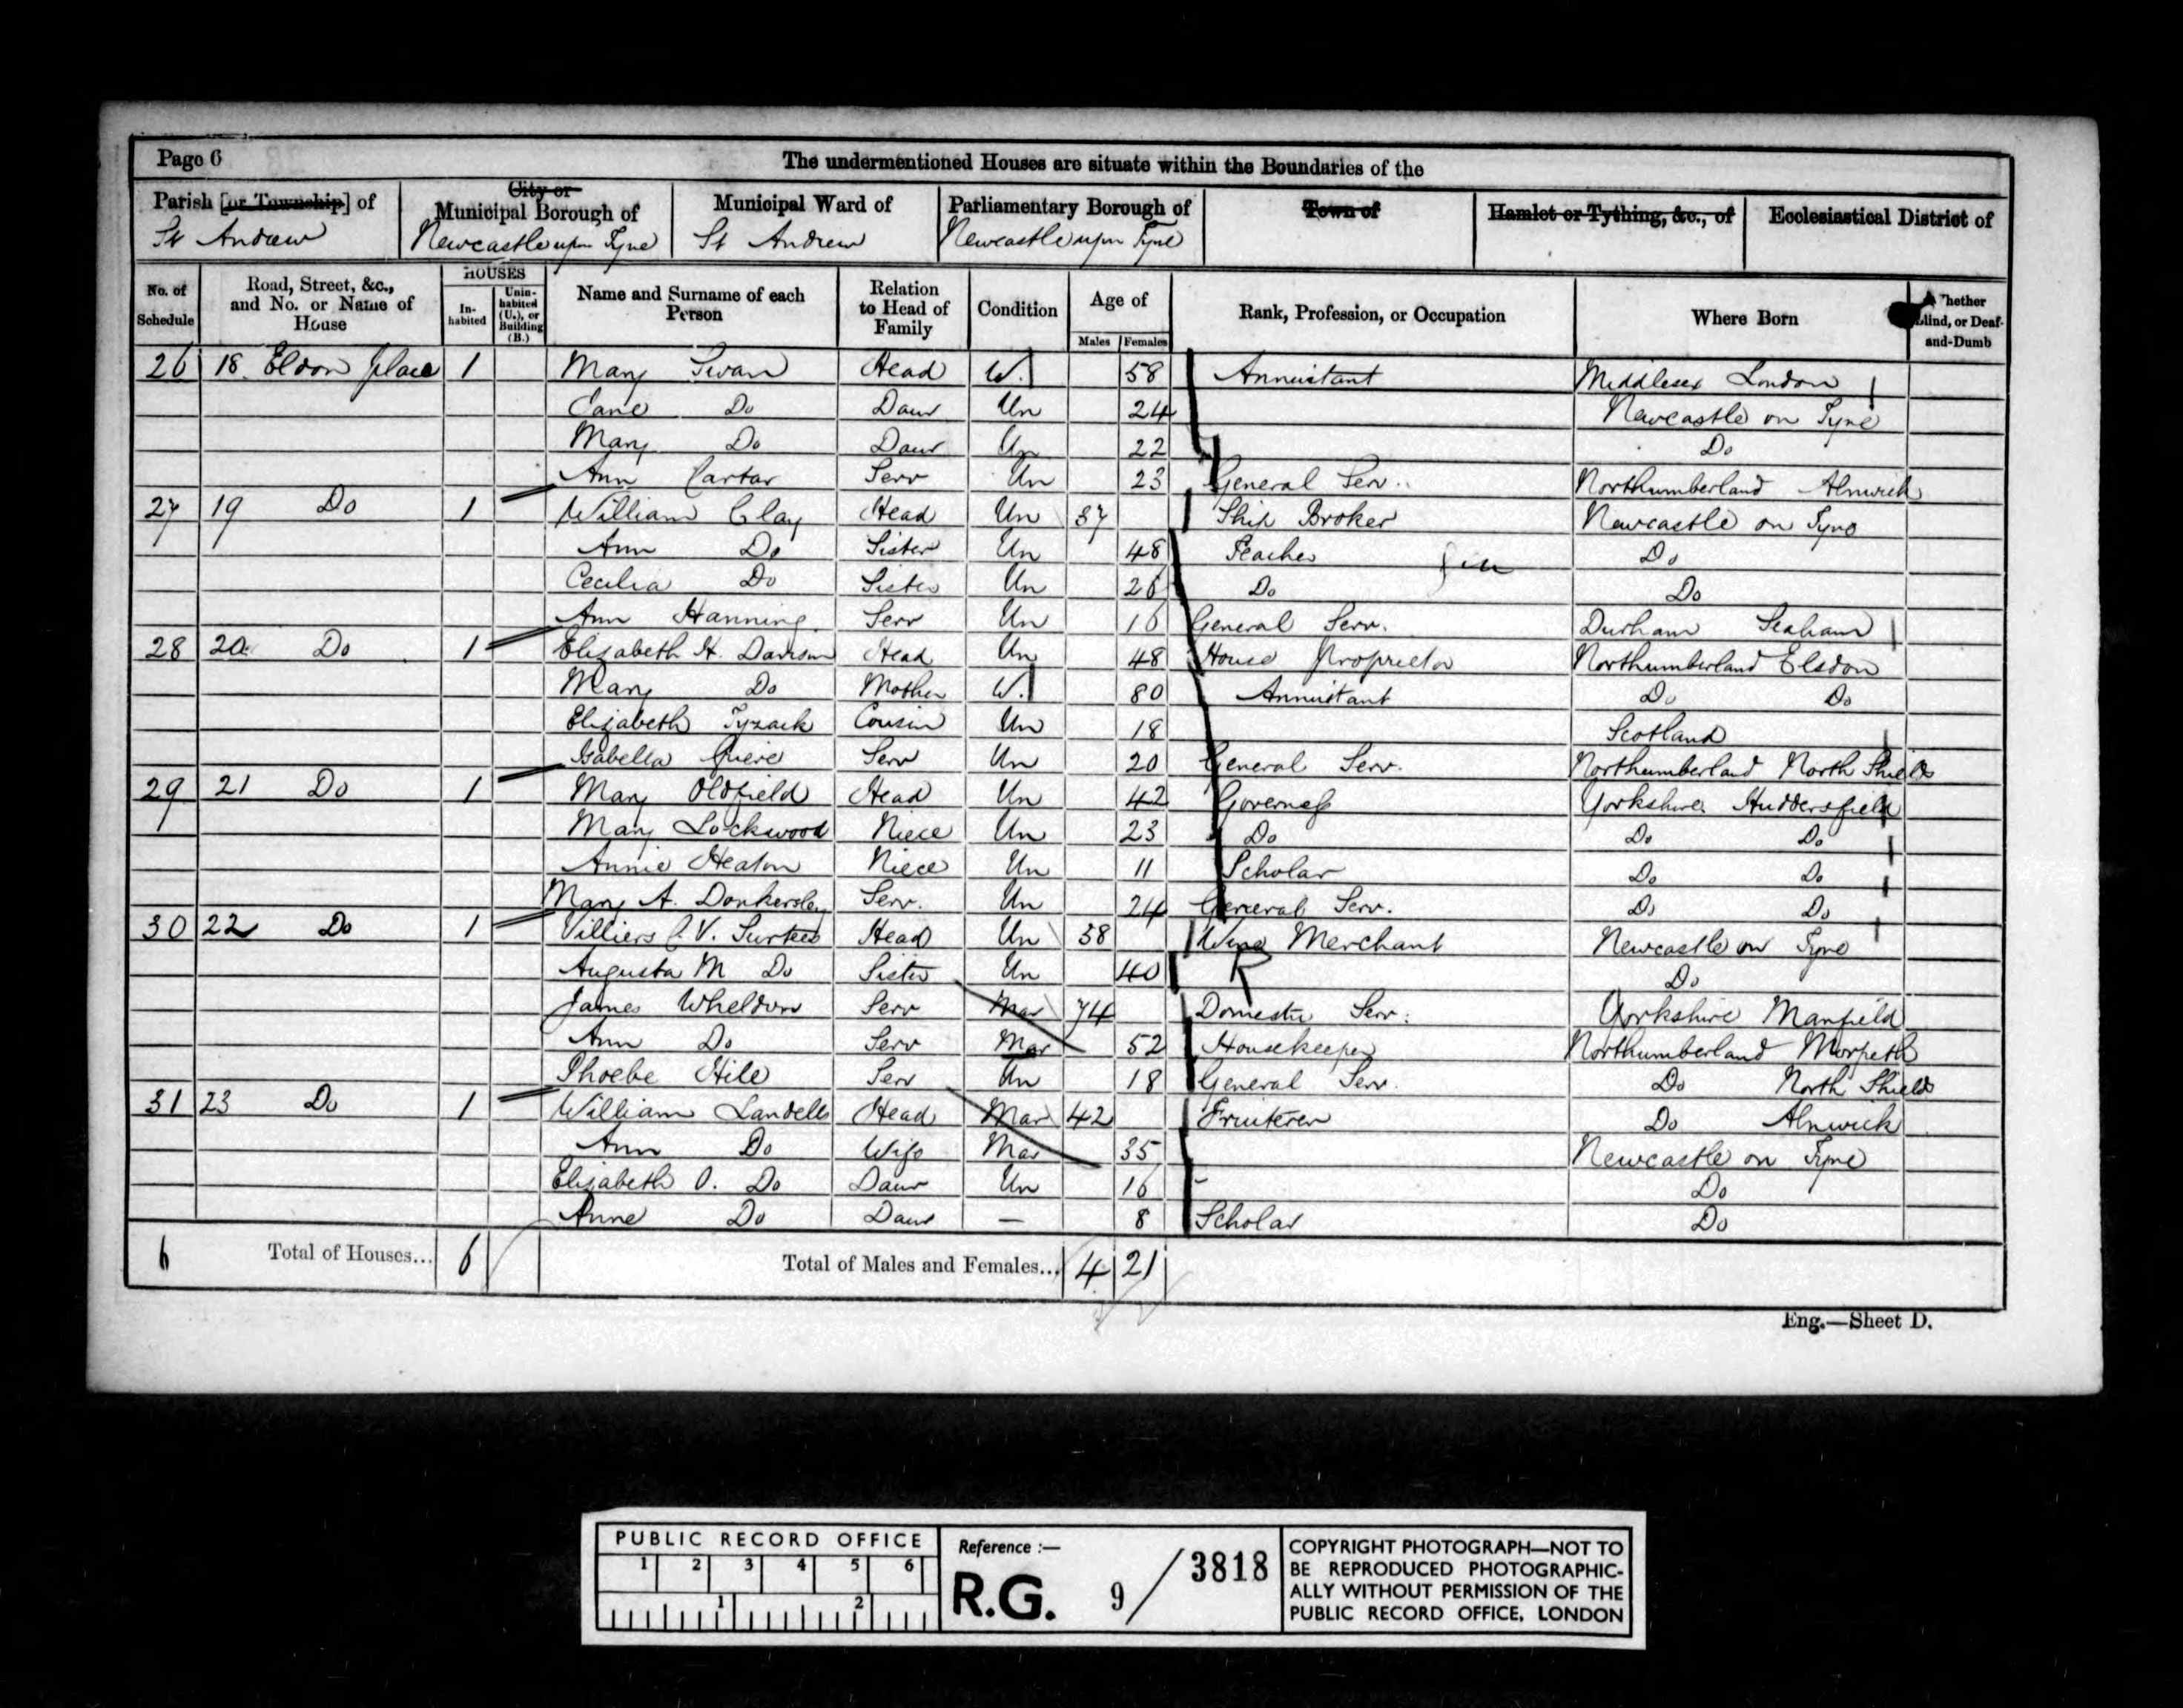 Page 6
The undermentioned Houses are situate within the Boundaries of the
Parish [or Township] of
St Andrew
City or
Municipal Borough of
Newcastle upon Tyne
Municipal Ward of
St Andrew
Parliamentary Borough of
Newcastle upon Tyne
Town of
Hamlet or Tything, &c., of
Ecclesiastical District of
No. of Schedule
Road, Street, &c., and No. or Name of House
HOUSES
In-habited
Unin-habited (U.), or Building (B.)
Name and Surname of each Person
Relation to Head of Family
Condition
Age of
Males Females
Rank, Profession, or Occupation
Where Born
Whether Blind, or Deaf-and-Dumb
26 18 Eldon place 1 Mary Swan Head W. 58 Annuitant Middlesex London
Jane Do Daur Un 24 Newcastle on Tyne
Mary Do Daur Un 22 Do
Ann Cartar Serv Un 23 General Serv. Northumberland Alnwick
27 19 Do 1 William Clay Head Un 37 Ship Broker Newcastle on Tyne
Ann Do Sister Un 48 Teacher Do
Cecilia Do Sister Un 26 Do Do
Ann Hanning Serv Un 16 General Serv. Durham Seaham
28 20 Do 1 Elizabeth H. Davison Head Un 48 House Proprietor Northumberland Elsdon
Mary Do Mother W. 80 Annuitant Do Do
Elizabeth Tyzack Cousin Un 18 Scotland
Isabella Serv Un 20 General Serv. Northumberland North Shields
29 21 Do 1 Mary Oldfield Head Un 42 Governess Yorkshire Huddersfield
Mary Lockwood Niece Un 23 Do Do Do
Annie Heaton Niece Un 11 Scholar Do Do
Mary A. Donkersley Serv. Un 24 General Serv. Do Do
30 22 Do 1 Villiers C. V. Surtees Head Un 38 Wine Merchant Newcastle on Tyne
Augusta M Do Sister Un 40 Do
James Wheldon Serv Mar 74 Domestic Serv: Yorkshire Manfield
Ann Do Serv Mar 52 Housekeeper Northumberland Morpeth
Phoebe Hile Serv Un 18 General Serv. Do North Shields
31 23 Do 1 William Landells Head Mar 42 Fruiterer Do Alnwick
Ann Do Wife Mar 35 Newcastle on Tyne
Elizabeth O. Do Daur Un 16 - Do
Anne Do Daur — 8 Scholar Do
6 Total of Houses... 6 Total of Males and Females... 4 21
Eng.—Sheet D.
PUBLIC RECORD OFFICE
1 2 3 4 5 6
1 2
Reference :—
R.G. 9/3818
COPYRIGHT PHOTOGRAPH—NOT TO
BE REPRODUCED PHOTOGRAPHIC-
ALLY WITHOUT PERMISSION OF THE
PUBLIC RECORD OFFICE, LONDON